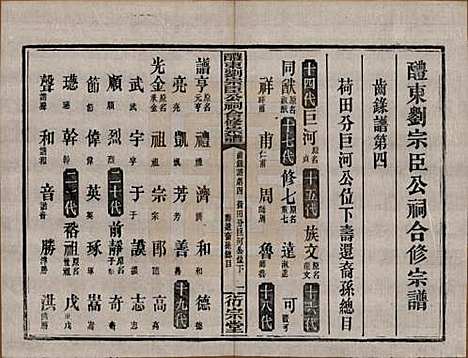 醴東劉宗臣公祠合修宗譜
齒錄譜第四
荷田分巨河公位下壽還裔孫總目
十四代 巨河 十五代 族交 十六代
同猷 十七代 修七 達 可
祥 甫 周 魯 十八代
醴東劉宗臣公祠合修宗譜
齒錄譜第四 荷田分巨河公位下 壽還裔孫總目 二 衍宗堂
譜亨 禮 濟 和 德
亮 凱 芳 善 十九代
光金 祖 宗 郎 高
武 宇 于 謨 志
順 烈 二十代 前靜 奇
節 幹 英 琢 嵩
瑾 幸 二一代 番祖 戊
聲 和 音 勝 洪